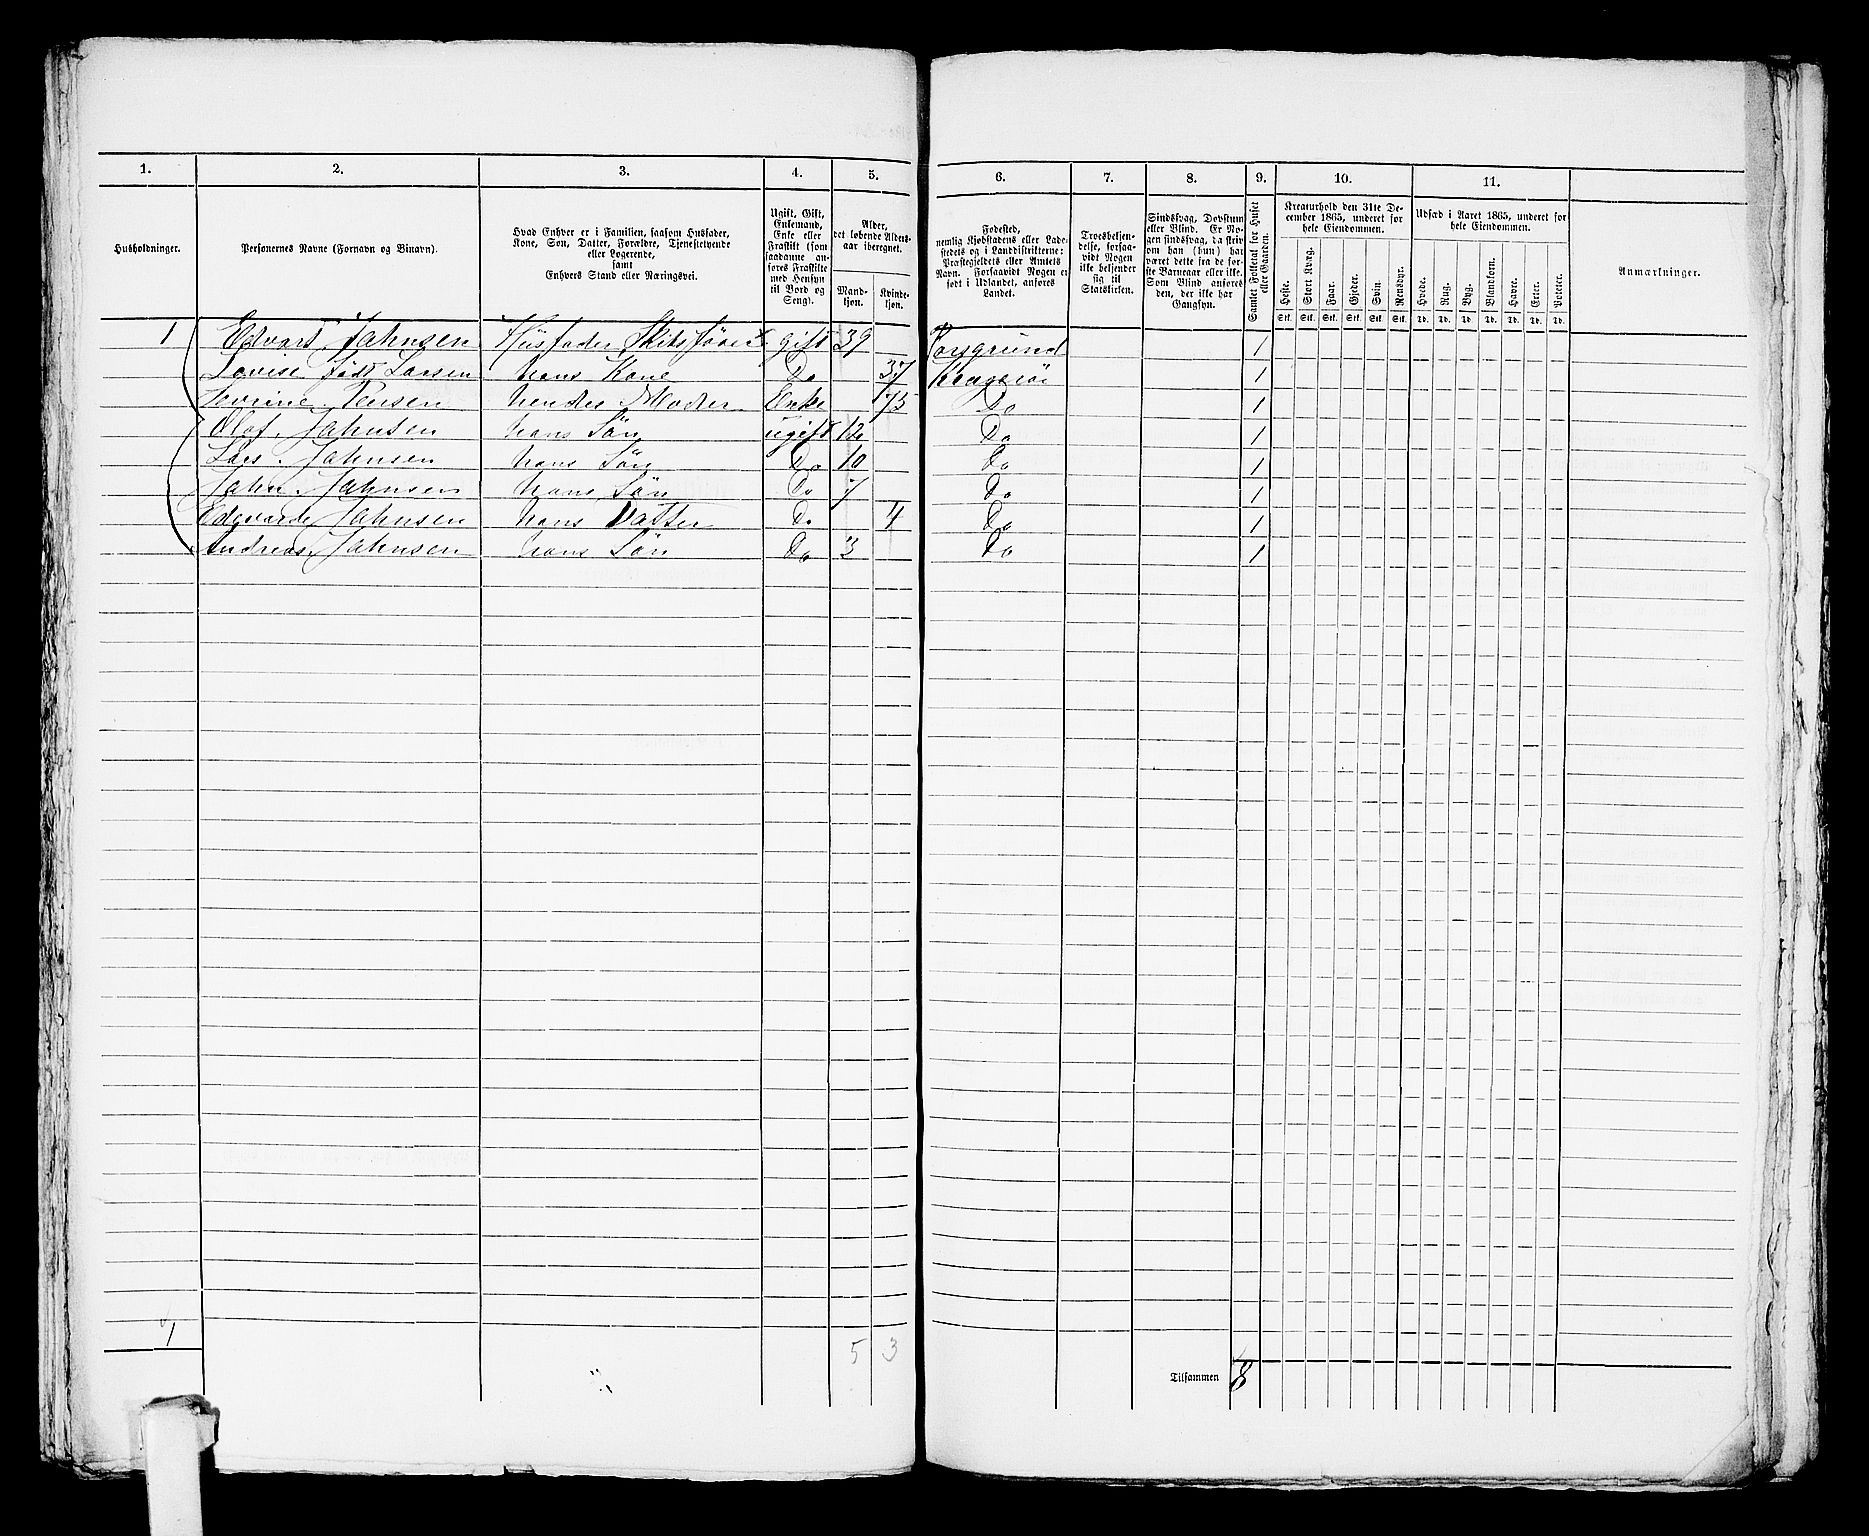 1. 2. 3. 4. 5. 6. 7. 8. 9. 10. 11.
Husholdninger.
Personernes Navne (Fornavn og Binavn).
Hvad Enhver er i Familien, saasom Husfader,
Kone, Søn, Datter, Forældre, Tjenestetyende
eller Logerende,
samt
Enhvers Stand eller Næringsvei.
Ugift, Gift,
Enkemand,
Enke eller
Fraskilt (som
saadanne an-
føres Fraskilte
med Hensyn
til Bord og
Seng).
Alder,
det løbende Alders-
aar iberegnet.
Mand-
kjøn.
Kvinde-
kjøn.
Fødested,
nemlig Kjøbstadens eller Lade-
stedets og i Landdistrikterne:
Præstegjeldets eller Amtets
Navn. Forsaavidt Nogen er
født i Udlandet, anføres
Landet.
Troesbekjen-
delse, forsaa-
vidt Nogen
ikke bekjender
sig til
Statskirken.
Sindssvag, Døvstum
eller Blind. Er No-
gen sindssvag, da skriv
om han (hun) har
været dette fra de før-
ste Barneaar eller ikke.
Som Blind anføres
den, der ikke har
Gangsyn.
Samlet Folketal for Huset
eller Gaarden.
Kreaturhold den 31te De-
cember 1865, underet for
hele Eiendommen.
Heste. Stort Kvæg. Faar. Gjeder. Svin. Rensdyr.
Stk. Stk. Stk. Stk. Stk. Stk.
Udsæd i Aaret 1865, underet for
hele Eiendommen.
Hvede. Rug. Byg. Blandkorn. Havre. Erter. Poteter.
Td. Td. Td. Td. Td. Td. Td.
Anmærkninger.
1 Edvart Jahnsen Husfader, gift 39 Porsgrund 1
Lovise født Larsen hans Kone Do 37 Kragerøe 1
Jensen hendes Moder Enke 75 Do 1
Olaf. Jahnsen hans Søn ugift 12 Do 1
Lars. Jahnsen hans Søn Do 10 Do 1
Jahn. Jahnsen hans Søn Do 7 Do 1
Edevarde Jahnsen hans Datter Do 4 Do 1
Andreas. Jahnsen hans Søn Do 3 Do 1
1 5 3
Tilsammen 8